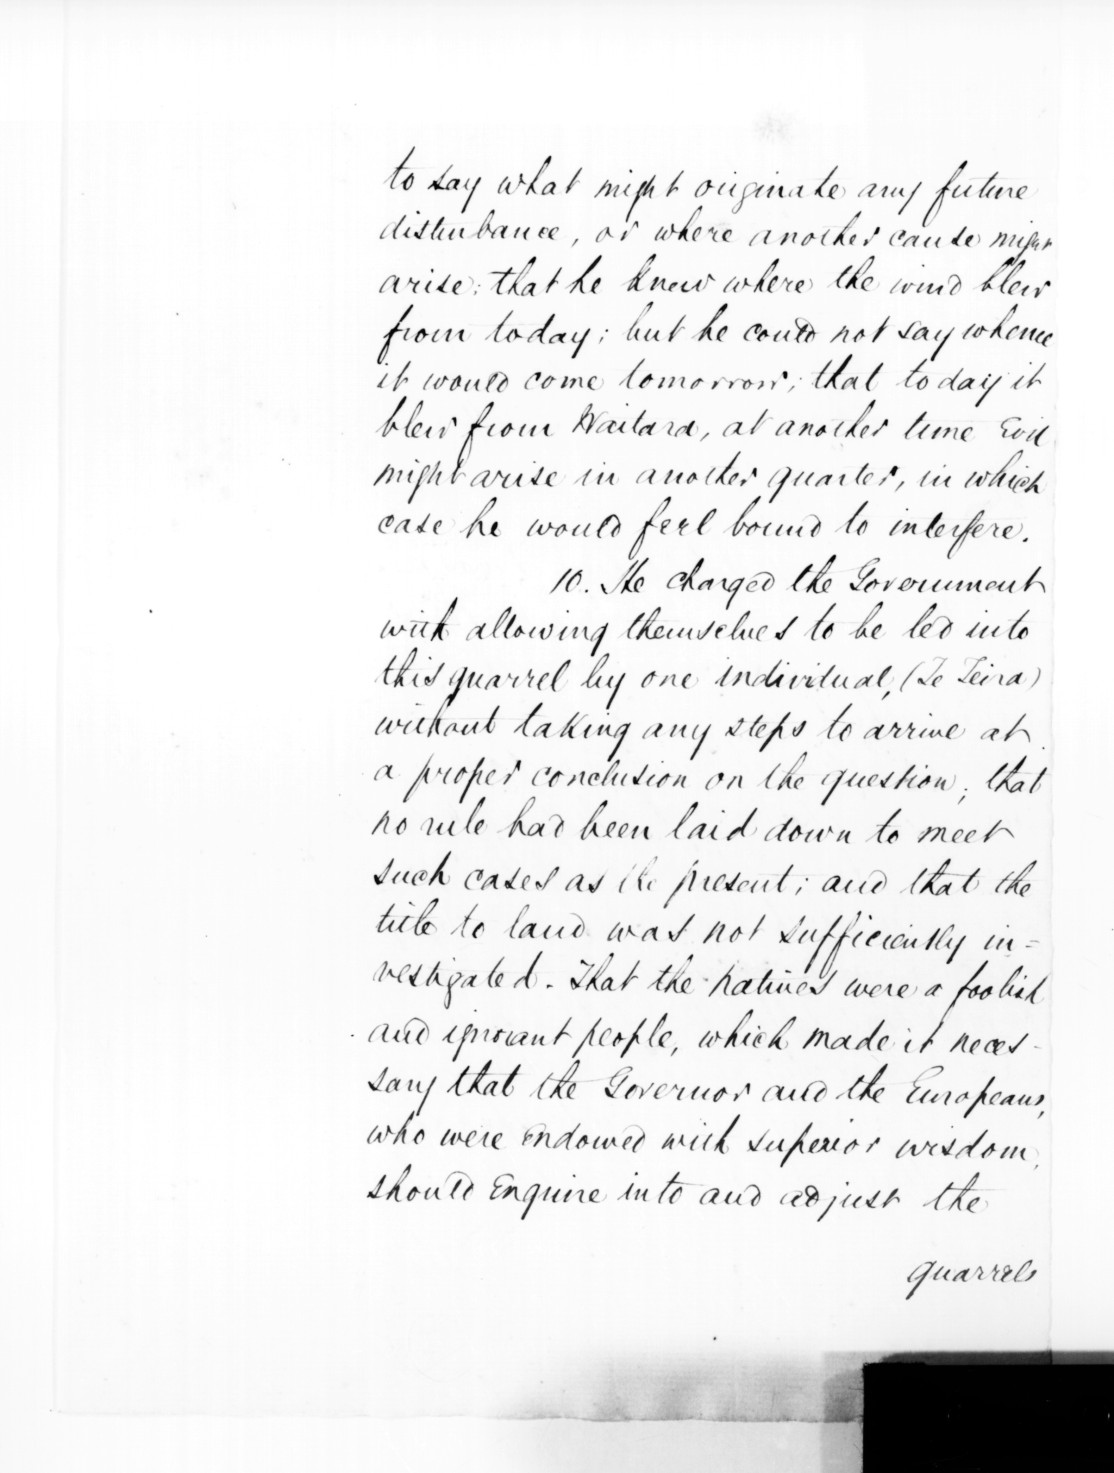 to say what might originate any future
disturbance, or where another cause might
arise: that he knew where the wind blew
from today; but he could not say whence
it would come tomorrow; that today it
blew from Waitara, at another time Evil
might arise in another quarter, in which
case he would feel bound to interfere.
10. He charged the Government
with allowing themselves to be led into
this quarrel by one individual, (Te Teira)
without taking any steps to arrive at
a proper conclusion on the question; that
no rule had been laid down to meet
such cases as the present; and that the
title to land was not sufficiently in=
vestigated. That the natives were a foolish
and ignorant people, which made it neces-
sary that the Governor and the Europeans,
who were endowed with superior wisdom,
should Enquire into and adjust the
quarrels